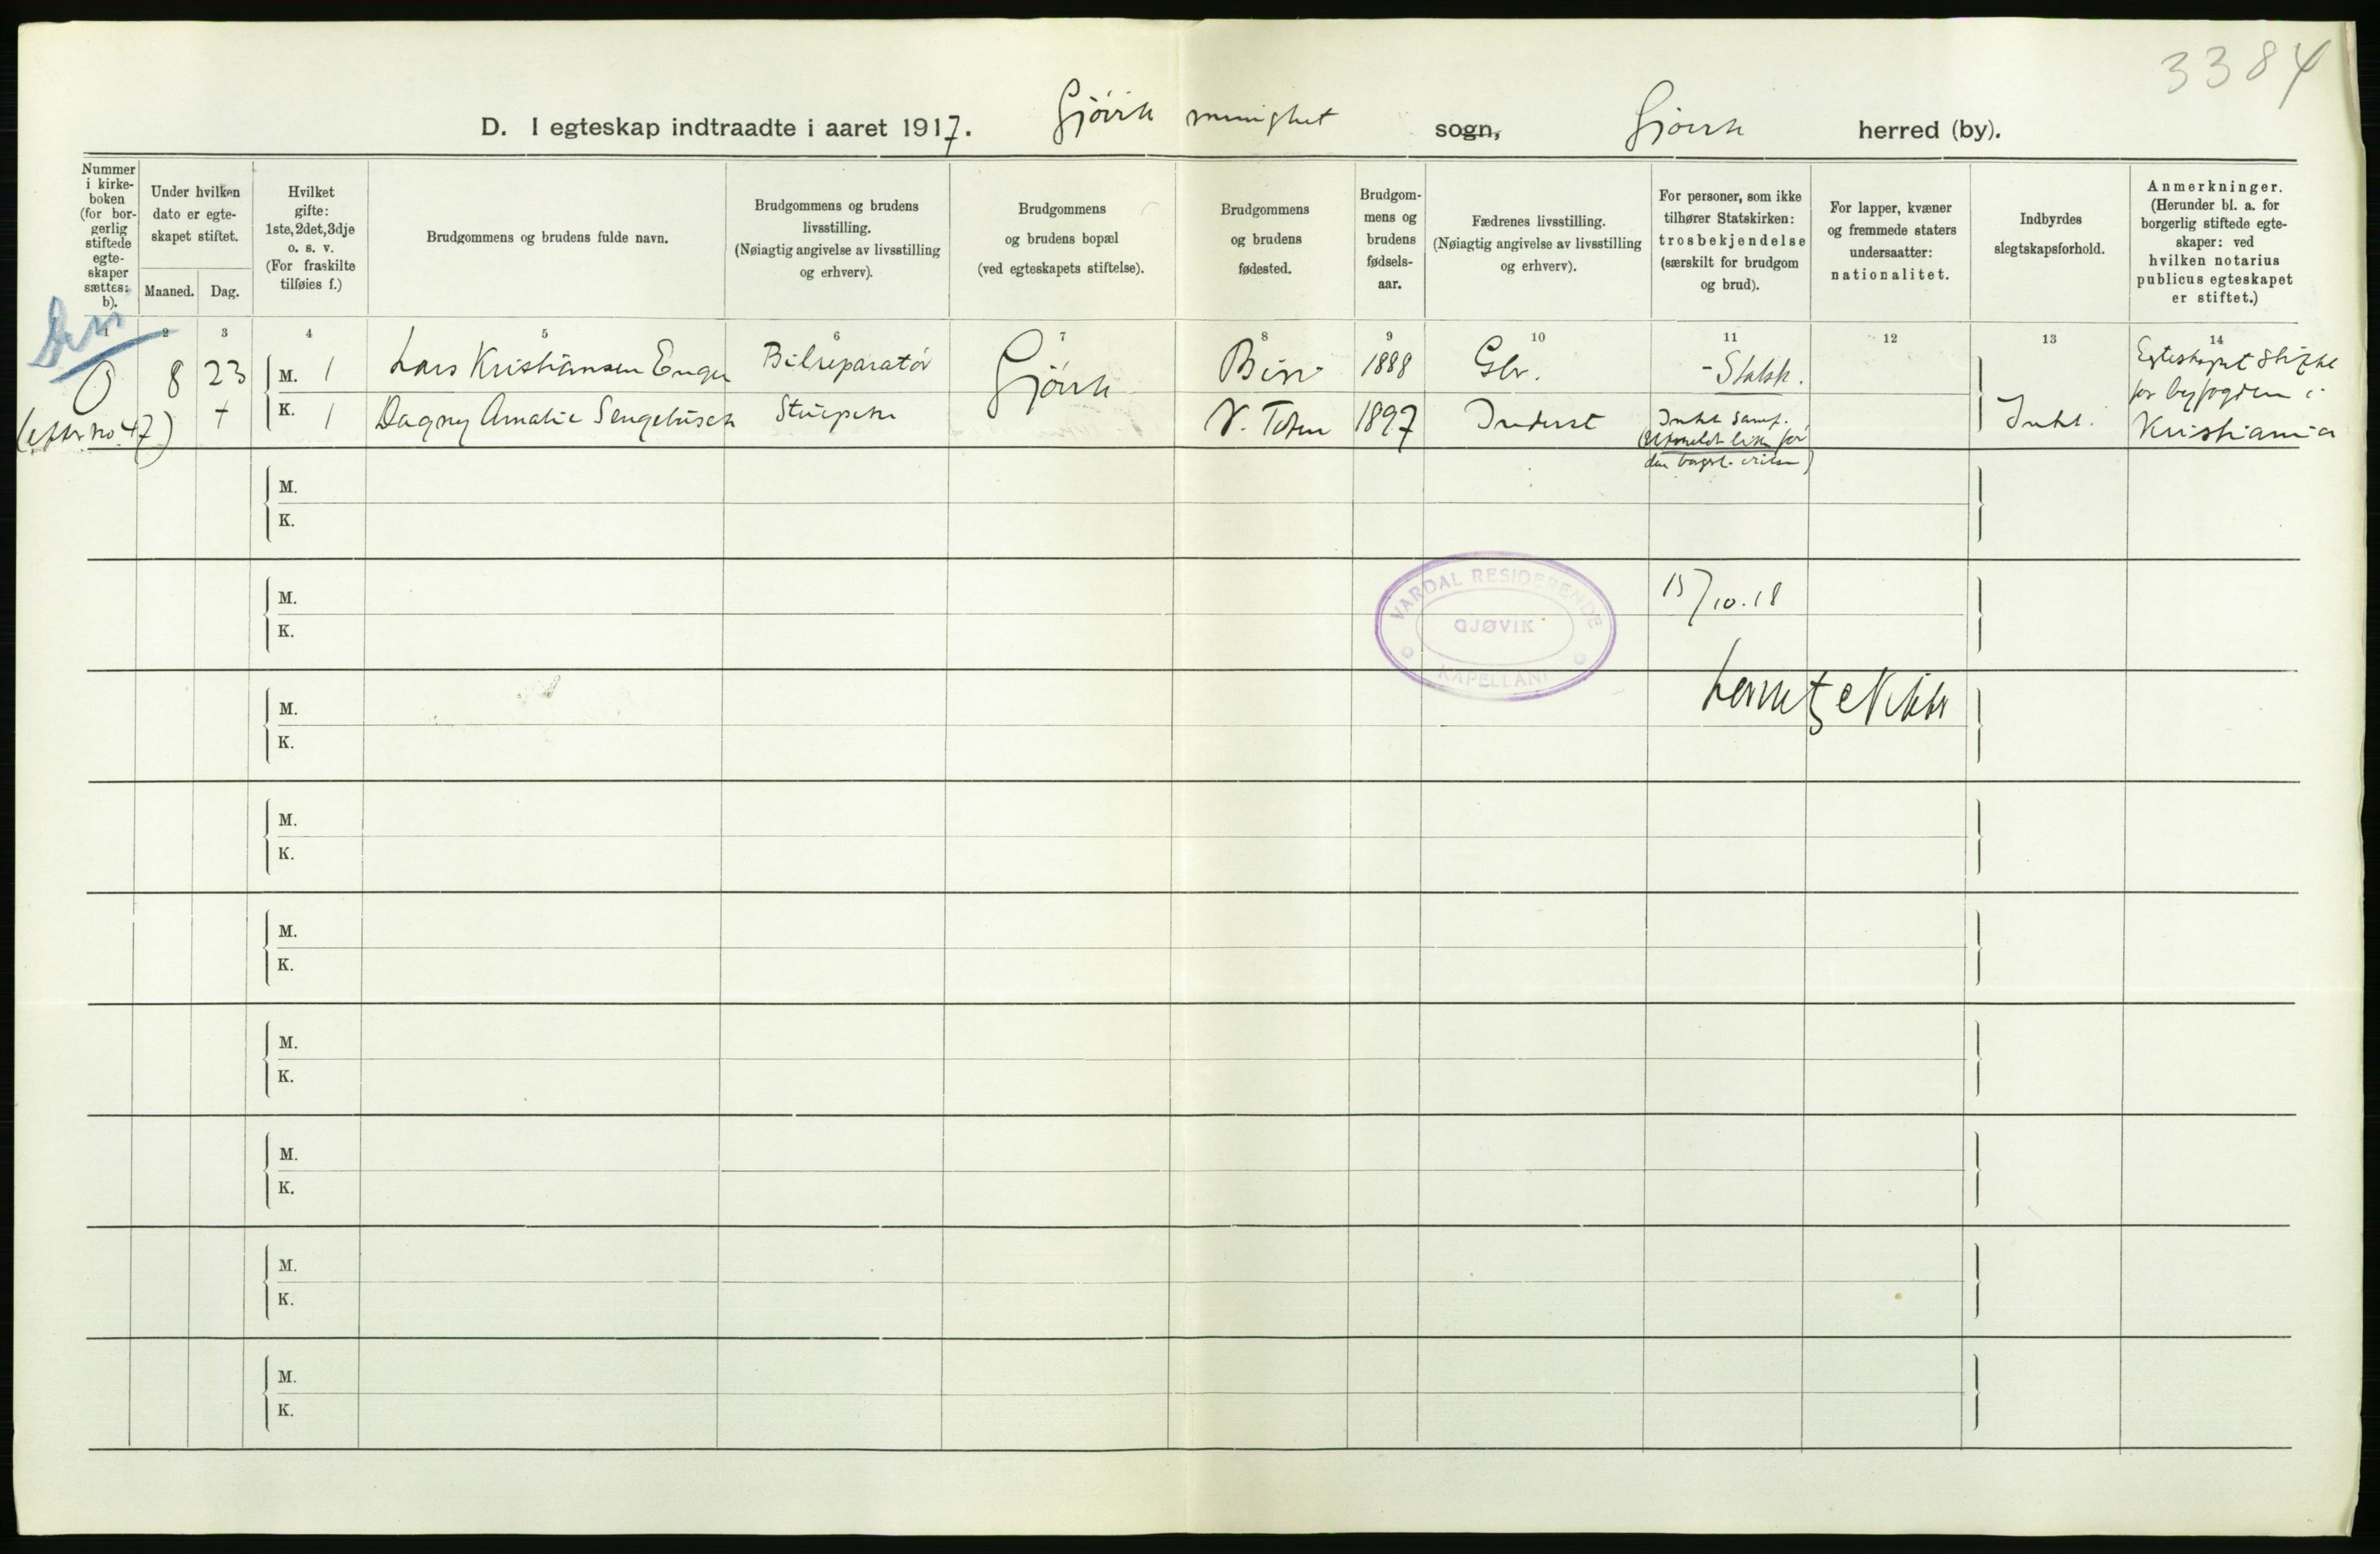 3384
D. I egteskap indtraadte i aaret 1917. Gjövik menighet sogn, Gjövik herred (by).
Nummer
i kirke-
boken
(for bor-
gerlig
stiftede
egte-
skaper
sættes:
b).
Under hvilken
dato er egte-
skapet stiftet.
Maaned. Dag.
Hvilket
gifte:
1ste, 2det, 3dje
o. s. v.
(For fraskilte
tilføies f.)
Brudgommens og brudens fulde navn.
Brudgommens og brudens
livsstilling.
(Nøiagtig angivelse av livsstilling
og erhverv).
Brudgommens
og brudens bopæl
(ved egteskapets stiftelse).
Brudgommens
og brudens
fødested.
Brudgom-
mens og
brudens
fødsels-
aar.
Fædrenes livsstilling.
(Nøiagtig angivelse av livsstilling
og erhverv).
For personer, som ikke
tilhører Statskirken:
trosbekjendelse
(særskilt for brudgom
og brud).
For lapper, kvæner
og fremmede staters
undersaatter:
nationalitet.
Indbyrdes
slegtskapsforhold.
Anmerkninger.
(Herunder bl. a. for
borgerlig stiftede egte-
skaper: ved
hvilken notarius
publicus egteskapet
er stiftet.)
1 2 3 4 5 6 7 8 9 10 11 12 13 14
0 8 23 M. 1 Lars Kristiansen Enger Bilreparatör Gjövik Biri 1888 Gbr. - Statsk. Egteskapet stiftet
for byfogden i
(efter no 47) + K. 1 Dagny Amalie Sengebusch Stuepike V. Toten 1897 Inderst Intet samf. Intet. Kristiania
(Utmeldt for
den borgerl. vielse)
M.
K.
M. 15/10.18
K.
VARDAL RESIDERENDE
GJØVIK
KAPELLANI
M.
K.
M.
K.
M.
K.
M.
K.
M.
K.
M.
K.
M.
K.